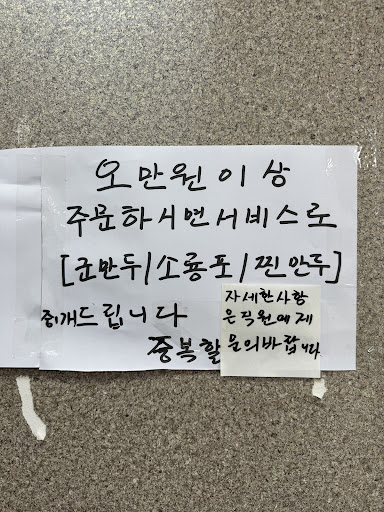 오만원이상
주문하시면서비스로
[군만두/소룡포/찐만두]
중1개드립니다
중복할
자세한사항
은직원에게
문의바랍니다